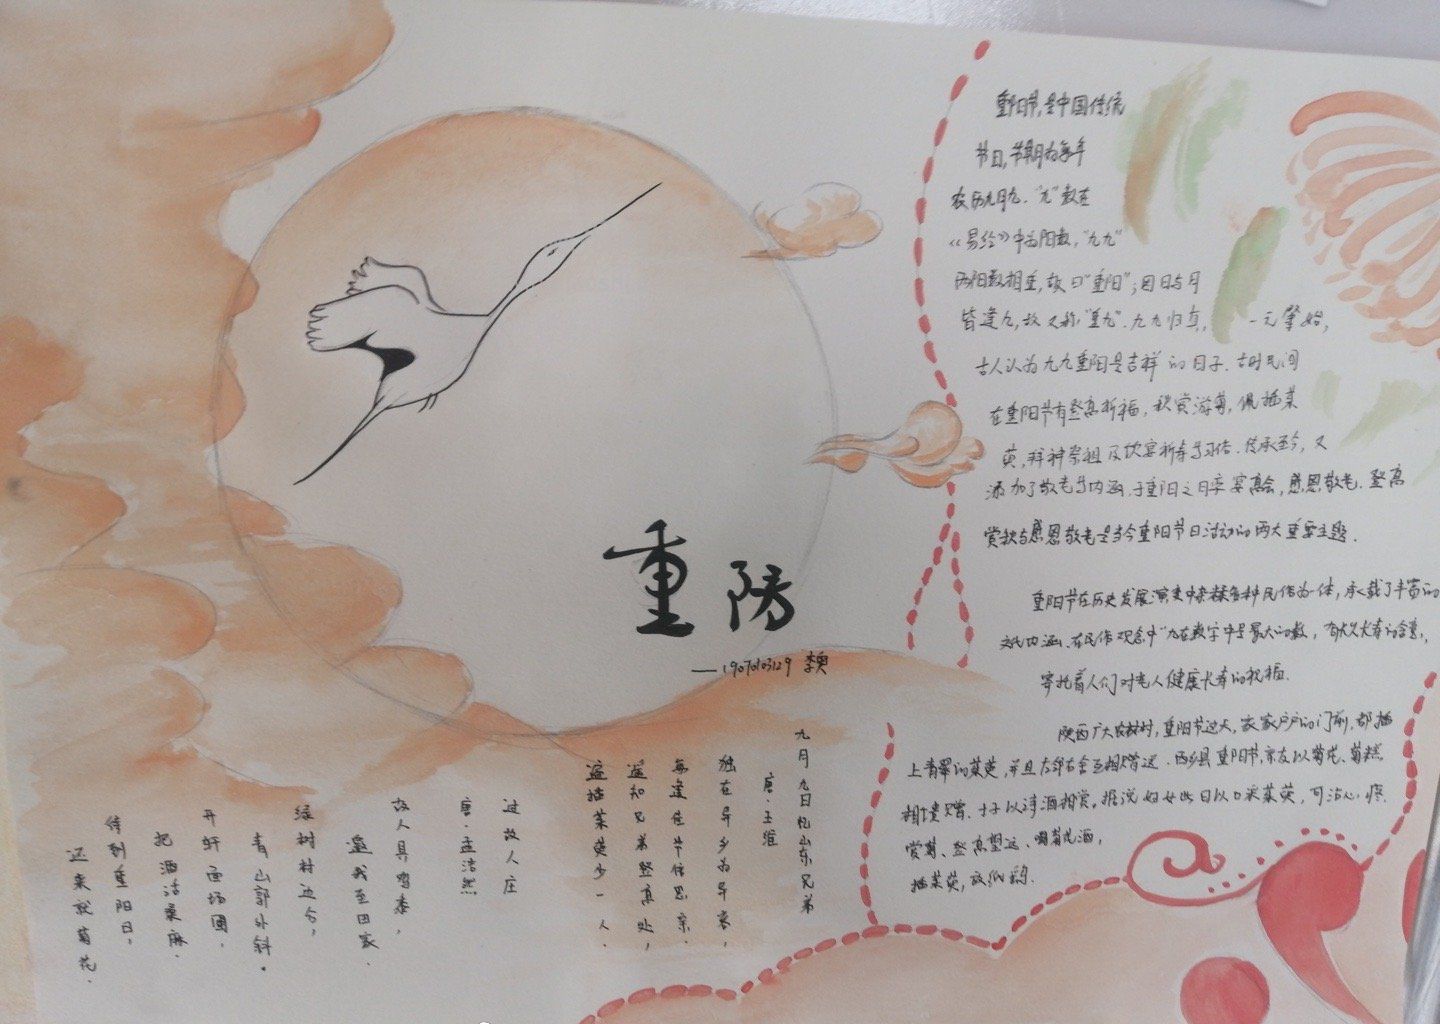 重陽
—19070103129
重阳节,是中国传统
节日,节期为每年
农历九月九、"九"数在
《易经》中为阳数,"九九"
两阳数相重,故曰"重阳";因日与月
皆逢九,故又称"重九".九九归真,一元肇始,
古人认为九九重阳是吉祥的日子.古时民间
在重阳节有登高祈福,秋赏游菊,佩插茱
萸,拜神祭祖及饮宴祈寿等习俗.传承至今,又
添加了敬老等内涵,于重阳之日享宴高会,感恩敬老.登高
赏秋与感恩敬老是当今重阳节日活动的两大重要主题.
重阳节在历史发展演变中杂糅多种民俗为一体,承载了丰富的
文化内涵.在民俗观念中"九在数字中是最大的数,有长久长寿的含意,
寄托着人们对老人健康长寿的祝福.
陕西广大农村村,重阳节这天,家家户户的门前,都插
上青翠的茱萸,并且左邻右舍互相赠送.西乡县重阳节,亲友以菊花、菊糕
相馈赠.士子以诗酒相赏,据说妇女此日以口采茱萸,可治心疼
赏菊、登高望远、喝菊花酒,
插茱萸,放纸鹞.
九月九日忆山东兄弟
唐·王维
独在异乡为异客,
每逢佳节倍思亲.
遥知兄弟登高处,
遍插茱萸少一人.
过故人庄
唐·孟浩然
故人具鸡黍,
邀我至田家.
绿树村边合,
青山郭外斜.
开轩面场圃,
把酒话桑麻.
待到重阳日,
还来就菊花.